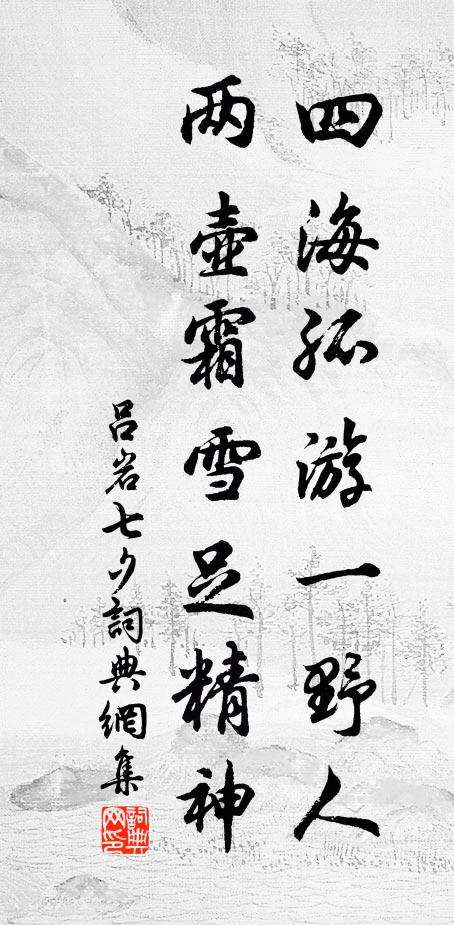 四海孤游一野人
两壶霜雪足精神
吕岩七夕词典網集
詞典网印